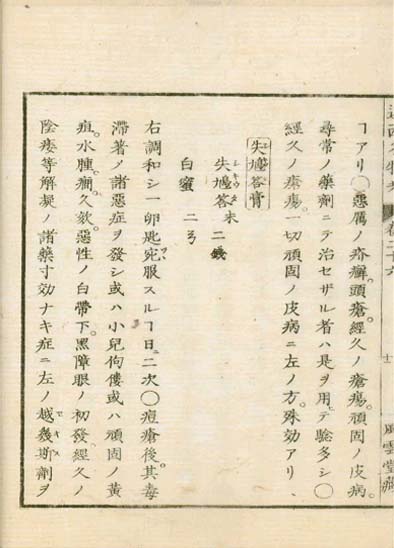 ヿアリ○惡厲ノ疥癬。頭瘡。經久ノ瘡瘍。頑固ノ皮病。
尋常ノ藥劑ニテ治セザル者ハ是ヲ用テ驗多シ○
經久ノ瘰瘍。一切頑固ノ皮病ニ左ノ方。殊効アリ、
失鳩答膏
失鳩答末 二錢
白蜜 二ヲ
右調和シ一卵匙宛服スルヿ日ニ二次○痘瘡後。其毒
滯著メ諸惡症ヲ發シ或ハ小兒佝僂或ハ頑固ノ黄
疸。水腫。癇。久欬。惡性ノ白帶下。黒障眼ノ初發。經久ノ
陰痿等解凝ノ諸藥寸効ナキ症ニ左ノ越幾斯劑ヲ